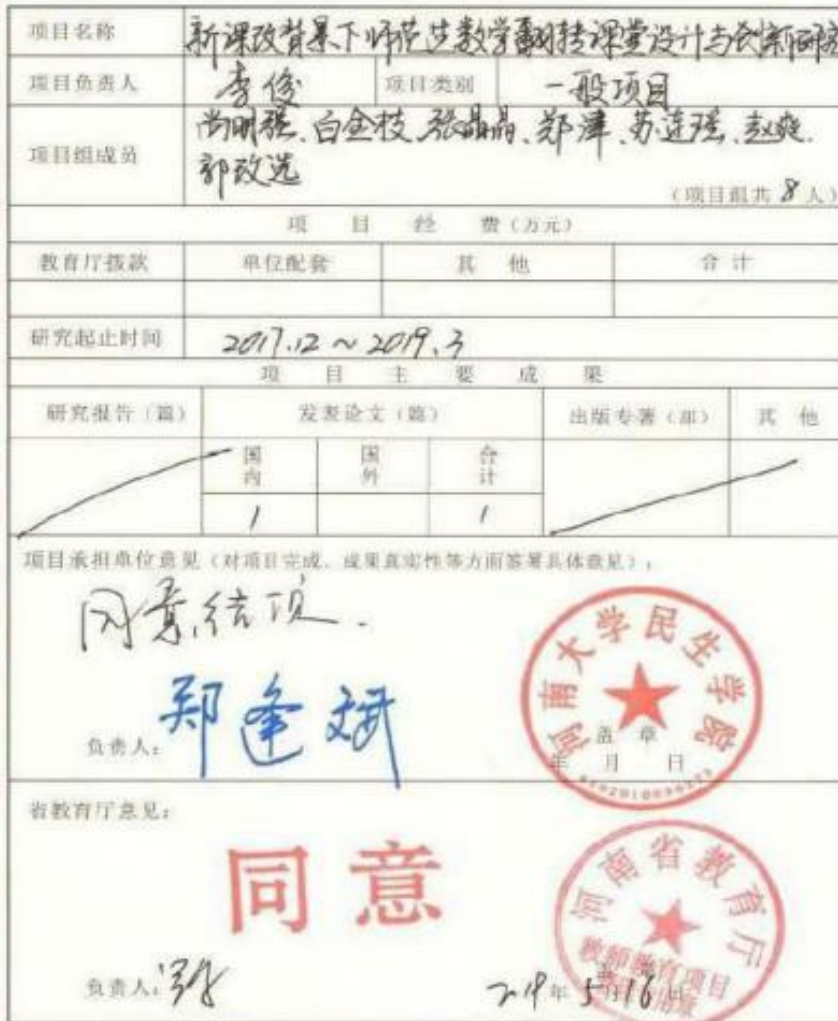 项目名称 新课改背景下师范类数学翻转课堂设计与创新研究
项目负责人 李俊 项目类别 一般项目
项目组成员 尚明强、白全枝、张晶晶、郑津、苏连瑶、赵爽、
郭改选
(项目组共 8 人)
项 目 经 费(万元)
教育厅拨款 单位配套 其 他 合 计
研究起止时间 2017.12～2019.3
项 目 主 要 成 果
研究报告(篇) 发表论文(篇) 出版专著(部) 其 他
国内 国外 合计
1 1
项目承担单位意见(对项目完成、成果真实性等方面签署具体意见):
同意结项.
河南大学民生学院
负责人: 郑逢斌
盖 章
年 月 日
省教育厅意见:
同意
河南省教育厅
教师教育项目
负责人:
2019年5月16日